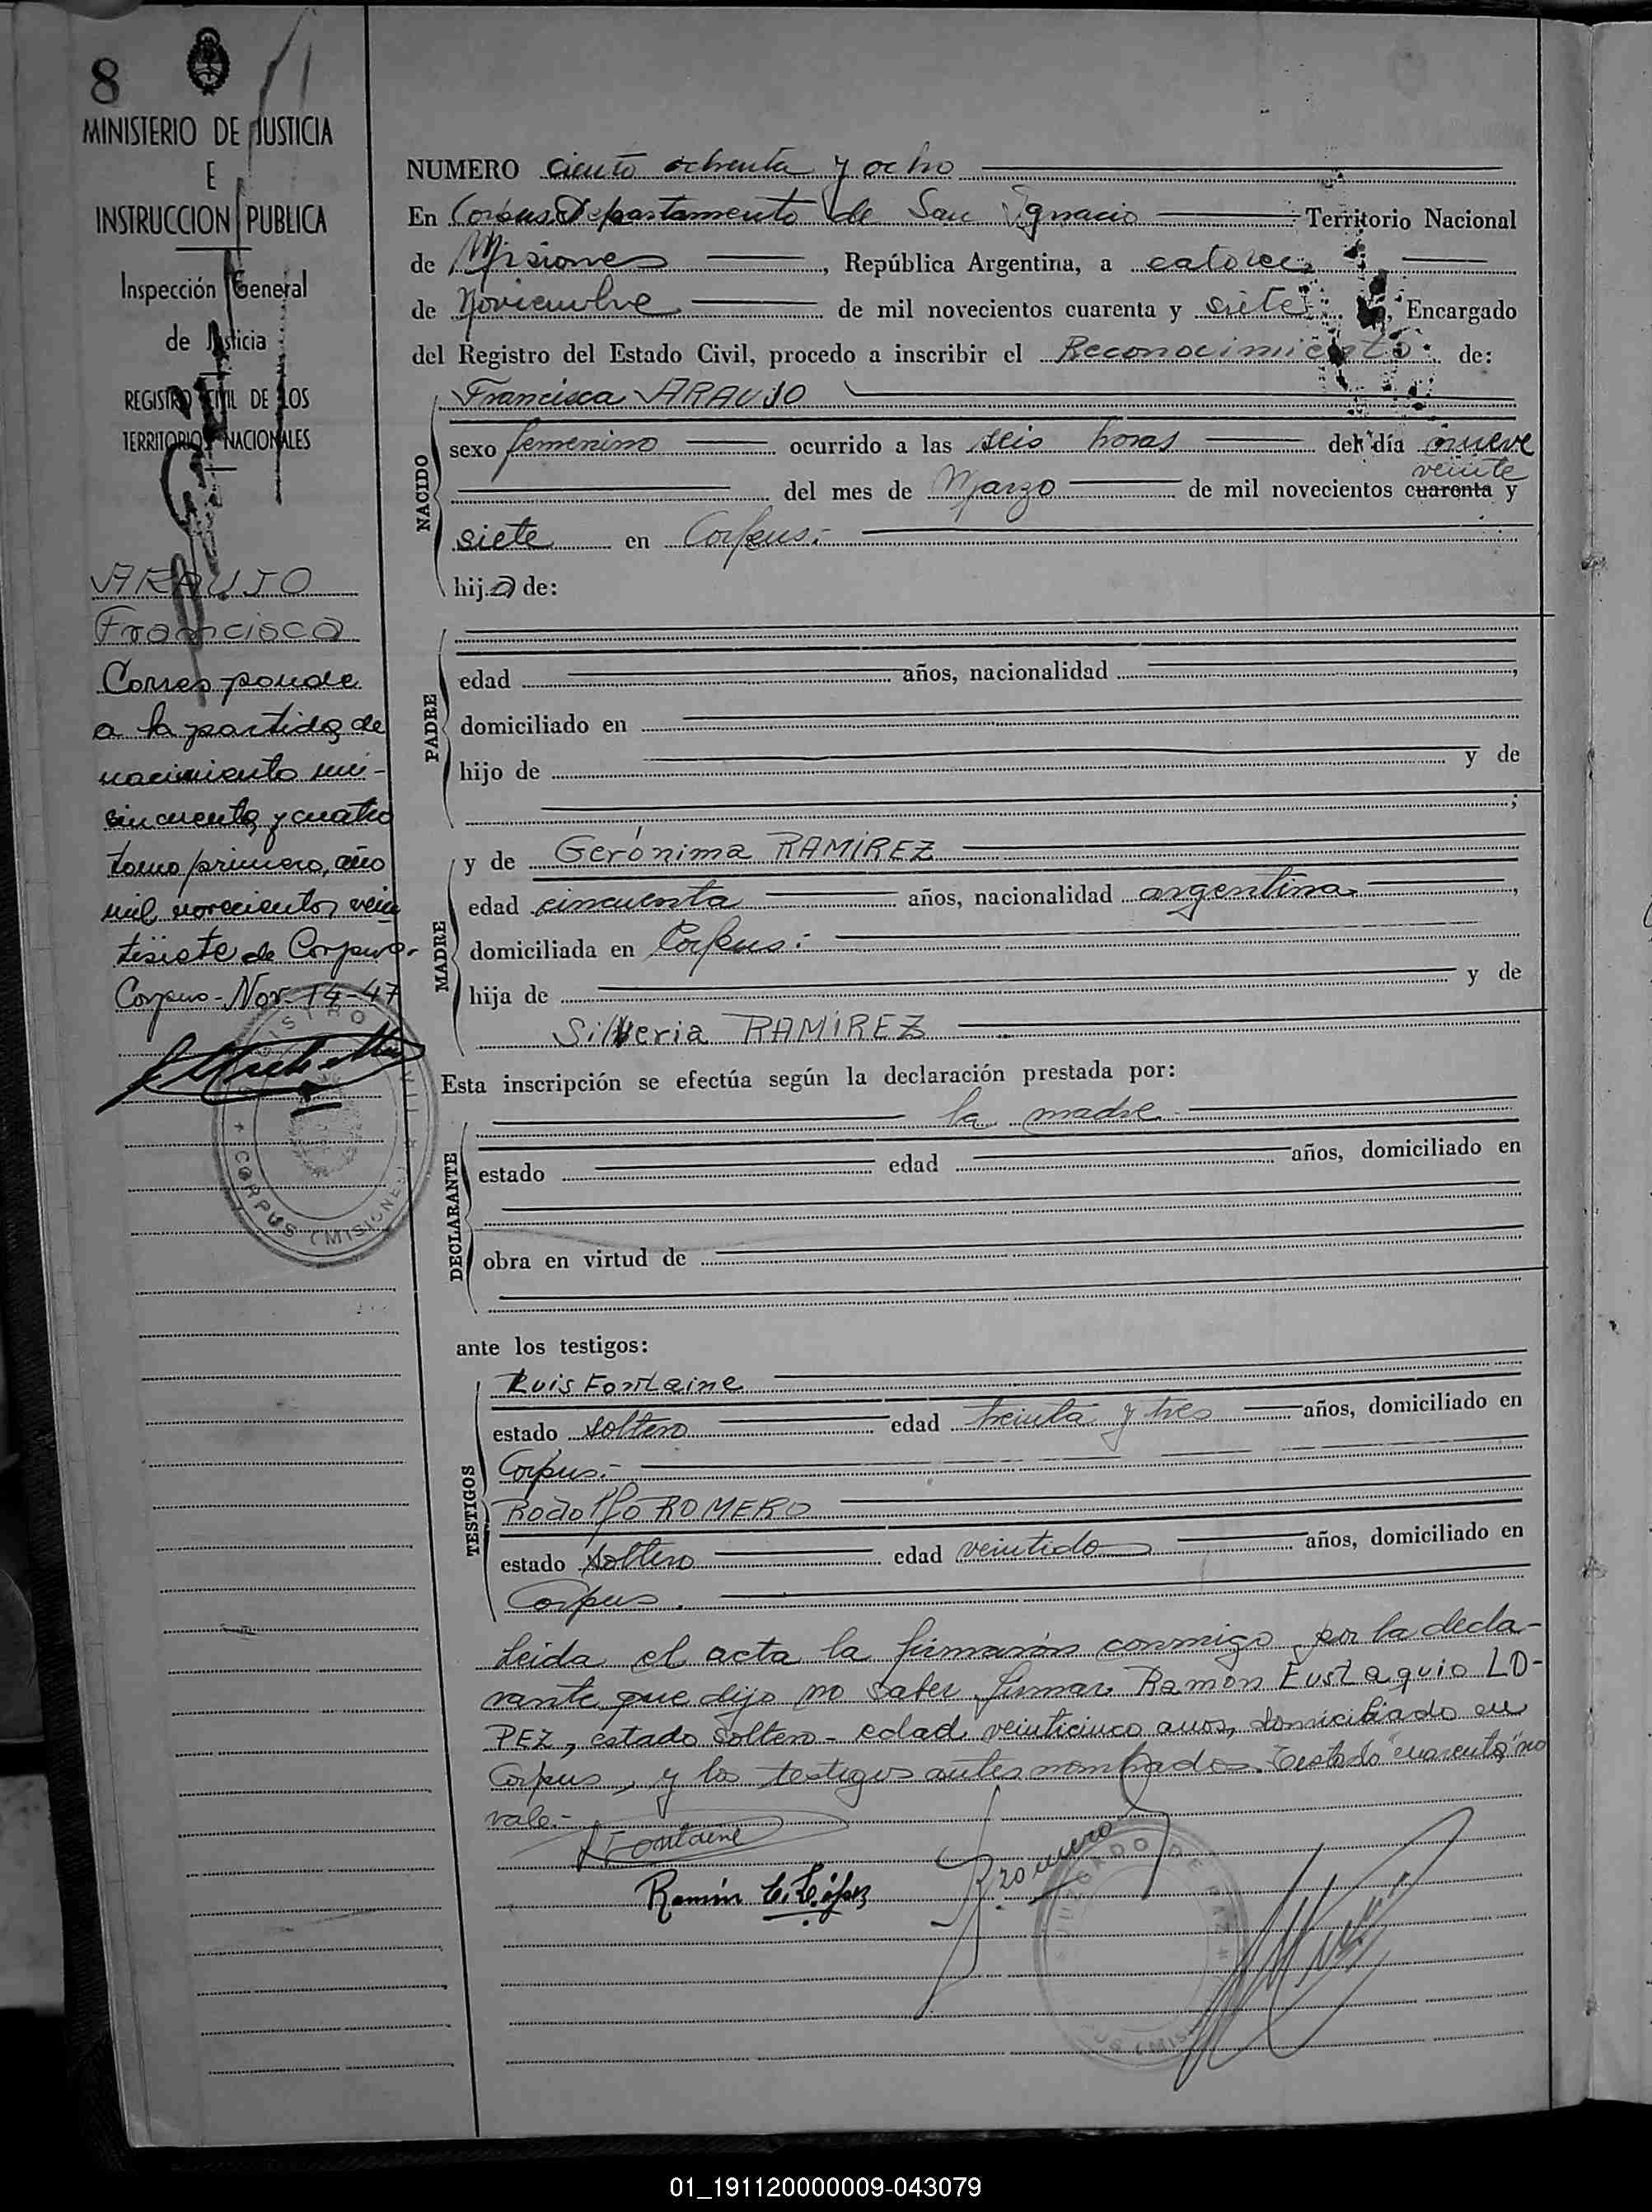 8
MINISTERIO DE JUSTICIA
E
INSTRUCCION PUBLICA
Inspección General
de Justicia
REGISTRO CIVIL DE LOS
TERRITORIOS NACIONALES
ARAUJO
Francisca
Corresponde
a la partida de
nacimiento nú-
cincuenta y cuatro
tomo primero, año
mil novecientos vein
tisiete de Corpus.
Corpus - Nov. 14-47
REGISTRO CIVIL
CORPUS (MISIONES)
NUMERO ciento ochenta y ocho
En Corpus Departamento de San Ignacio Territorio Nacional
de Misiones, República Argentina, a catorce
de Noviembre de mil novecientos cuarenta y siete, Encargado
del Registro del Estado Civil, procedo a inscribir el Reconocimiento de:
NACIDO
Francisca ARAUJO
sexo femenino ocurrido a las seis horas del día nueve
veinte
del mes de Marzo de mil novecientos cuarenta y
siete en Corpus.-
hija de:
PADRE
edad años, nacionalidad ,
domiciliado en
hijo de y de
;
MADRE
y de Gerónima RAMIREZ
edad cincuenta años, nacionalidad argentina ,
domiciliada en Corpus.-
hija de y de
Silveria RAMIREZ
Esta inscripción se efectúa según la declaración prestada por:
DECLARANTE
la madre
estado edad años, domiciliado en
obra en virtud de
ante los testigos:
TESTIGOS
Luis Fontaine
estado soltero edad treinta y tres años, domiciliado en
Corpus.-
Rodolfo ROMERO
estado soltero edad veintido años, domiciliado en
Corpus.
Leida el acta la firmarón conmigo por la decla-
rante que dijo no saber firmar Ramón Eustaquio LO-
PEZ, estado soltero - edad veinticinco anos, domiciliado en
Corpus, y los testigos antes nombrados. Testado "cuarenta" no
vale.-
L Fontaine
Ramón E. López
R romero
JUZGADO DE PAZ
01_191120000009-043079